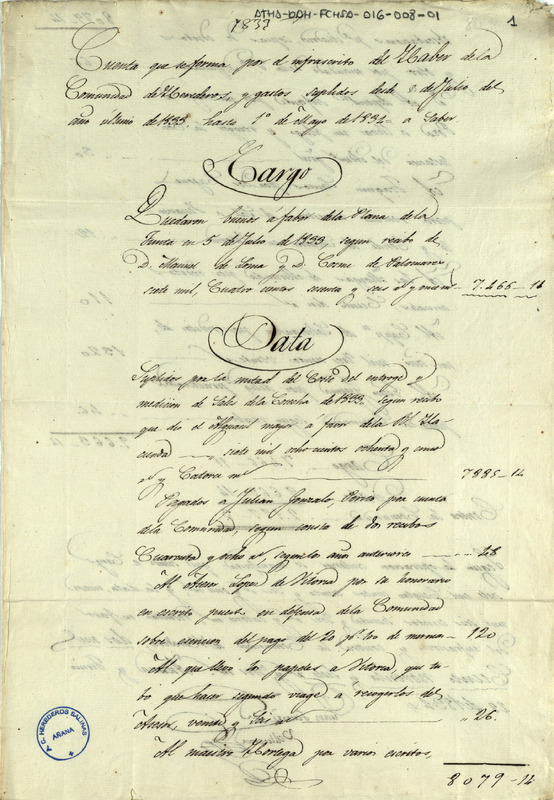 ATHA-DAH-FCHSA-016-008-01
1833
1
Cuenta que se forma por el infrascrito del Haber de la
Comunidad de Herederos, y gastos suplidos desde 5 de Julio del
año ultimo de 1833, hasta 1º de Mayo de 1834. a Saber
Cargo
Quedaron buenos á fabor de la Plana de la
Junta en 5 de Julio de 1833, segun recibo de
D. Manuel de Loma y D. Cosme de Palomares
siete mil, Cuatro cientos sesenta y seis rs y mrs 7.466-14
Data
Suplidos por la mitad del Coste del entroge y
medicion de Sales de la Cosecha de 1833. segun recibo
que dio el Alguacil mayor á fabor de la Rl. Ha-
cienda siete mil ochocientos ochenta y cinco
rs y Catorce ms 7885-14
Pagados a Julian Gonzalo, Perito por cuenta
de la Comunidad, segun consta de dos recibos
Cuarenta y ocho rs, segun los años anteriores 48
Al Asesor Lopez de Vitoria por su honorario
en escrito puesto en defensa de la Comunidad
sobre esencion del pago del 20 pr %o de 120
Al que llevó los papeles a Vitoria, que tu-
bo que hacer segundo viage á recogerlos del
Asesor, veinte y seis rs 26.
Al maestro Hortega por varios escritos,
8079-14
C. HEREDEROS SALINAS
AÑANA